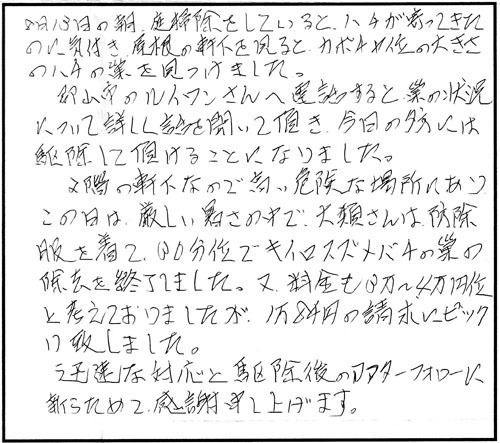 8月13日の朝、庭掃除をしていると、ハチが寄ってきた
のに気付き、屋根の軒下を見ると、カボチャ位の大きさ
のハチの巣を見つけました。
郡山市のルイワンさんへ電話すると、巣の状況
について詳しく話を聞いて頂き、今日の夕方には
駆除して頂けることになりました。
2階の軒下なので高い危険な場所にあり
この日は、厳しい暑さの中で、大類さんは、防除
服を着て、30分位でキイロスズメバチの巣の
除去を終了しました。又、料金も3万〜4万円位
と考えておりましたが、1万8千円の請求にビック
リ致しました。
迅速な対応と駆除後のアフターフォローに
改ためて、感謝申し上げます。